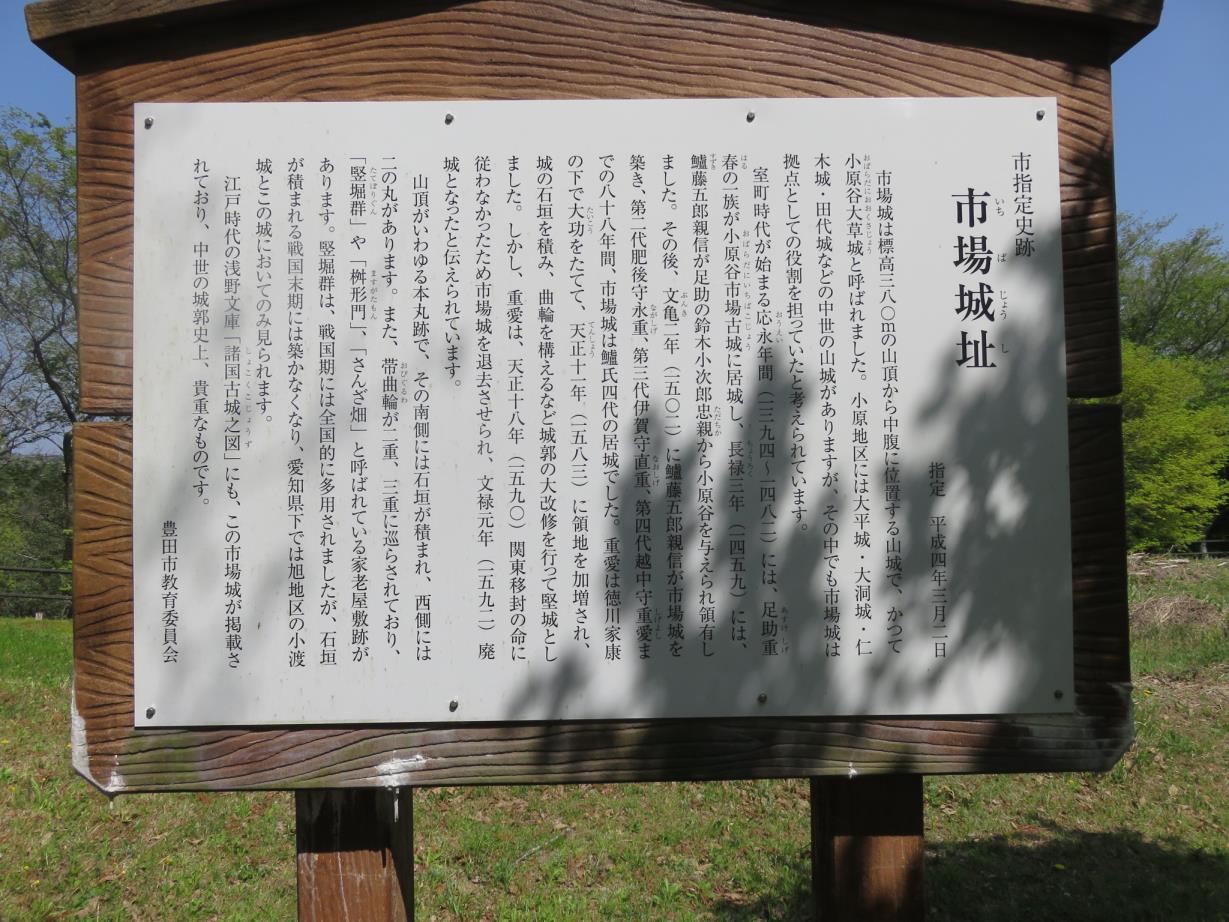 市指定史跡
市場城址
いちばじょうし
指定　平成四年三月二日
市場城は標高三八〇mの山頂から中腹に位置する山城で、かつて
小原谷大草城と呼ばれました。小原地区には大平城・大洞城・仁
おばらだにおおくさじょう
木城・田代城などの中世の山城がありますが、その中でも市場城は
拠点としての役割を担っていたと考えられています。
室町時代が始まる応永年間（一三九四～一四八二）には、足助重
おうえい
あすけしげ
春の一族が小原谷市場古城に居城し、長禄三年（一四五九）には、
はる
おばらだにいちばこじょう
ちょうろく
鱸藤五郎親信が足助の鈴木小次郎忠親から小原谷を与えられ領有し
すずき
ただちか
ました。その後、文亀二年（一五〇二）に鱸藤五郎親信が市場城を
ぶんき
築き、第二代肥後守永重、第三代伊賀守直重、第四代越中守重愛ま
ながしげ
なおしげ
しげよし
での八十八年間、市場城は鱸氏四代の居城でした。重愛は徳川家康
の下で大功をたてて、天正十一年（一五八三）に領地を加増され、
たいこう
てんしょう
城の石垣を積み、曲輪を構えるなど城郭の大改修を行って堅城とし
ました。しかし、重愛は、天正十八年（一五九〇）関東移封の命に
従わなかったため市場城を退去させられ、文禄元年（一五九二）廃
城となったと伝えられています。
山頂がいわゆる本丸跡で、その南側には石垣が積まれ、西側には
二の丸があります。また、帯曲輪が二重、三重に巡らされており、
おびぐるわ
「竪堀群」や「桝形門」、「さんざ畑」と呼ばれている家老屋敷跡が
たてぼりぐん
ますがたもん
あります。竪堀群は、戦国期には全国的に多用されましたが、石垣
が積まれる戦国末期には築かなくなり、愛知県下では旭地区の小渡
城とこの城においてのみ見られます。
江戸時代の浅野文庫「諸国古城之図」にも、この市場城が掲載さ
しょこくこじょうず
れており、中世の城郭史上、貴重なものです。
豊田市教育委員会